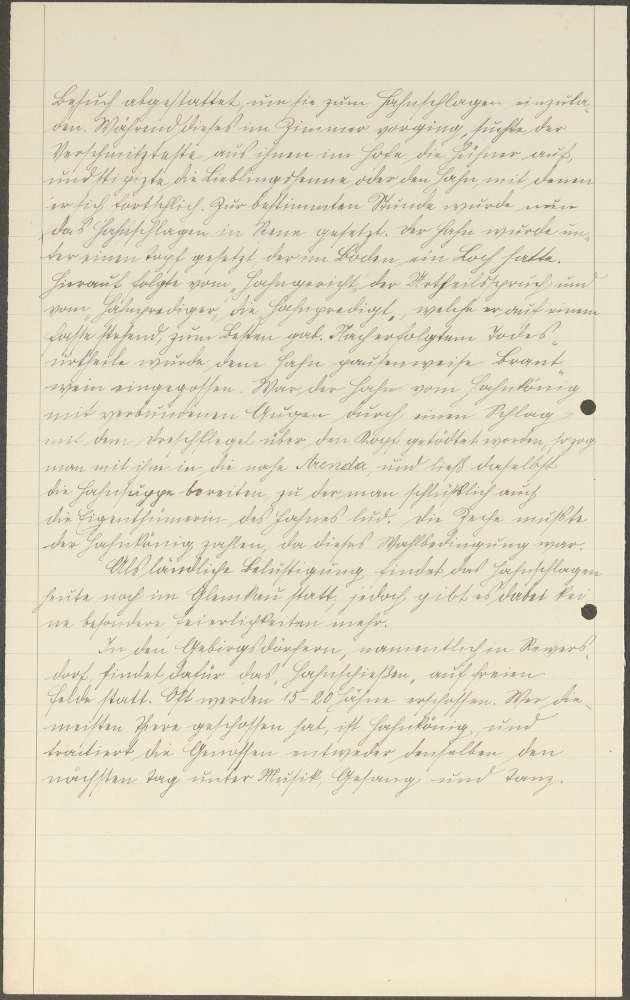 Besuch abgestattet, um sie zum Hahnschlagen einzula-
den. Während dieses im Zimmer vorging, suchte der
Verschmitzteste aus ihnen im Hofe die Hühner auf,
und stipizte die Lieblingshenne oder den Hahn, mit denen
er sich fortschlich. Zur bestimmten Stunde wurde nun
das Hahnschlagen in Szene gesetzt. Der Hahn wurde un-
ter einen Topf gesetzt der im Boden ein Loch hatte.
Hierauf folgte vom „Hahngericht“ der Urtheilsspruch und
vom „Hahnprediger“ die Hahnpredigt, welche er auf einem
Fasse stehend, zum Besten gab. Nach erfolgtem Todes-
urtheile wurde dem Hahn pausenweise Brant-
wein eingegossen. War der Hahn vom Hahnkönig
mit verbundenen Augen durch einen Schlag
mit dem Dreschflegel über den Kopf getödtet worden, so zog
man mit ihm in die nahe Arenda, und ließ daselbst
die Hahnsuppe bereiten, zu der man schlüßlich auch
die Eigenthümerin des Hahnes lud. Die Zeche mußte
der Hahnkönig zahlen, da dieses Wahlbedingung war.
Als ländliche Belustigung findet das Hahnschlagen
heute noch im Glemkau statt, jedoch gibt es dabei kei-
ne besondere Feierlichkeiten mehr.
In den Gebirgsdörfern, namentlich in Rewers-
dorf, findet dafür das „Hahnschießen“ auf freiem
Felde statt. Oft werden 15-20 Hähne erschossen. Wer die
meisten Thiere geschossen hat, ist Hahnkönig und
tractiert die Genossen entweder denselben den
nächsten Tag unter Musik, Gesang und Tanz.